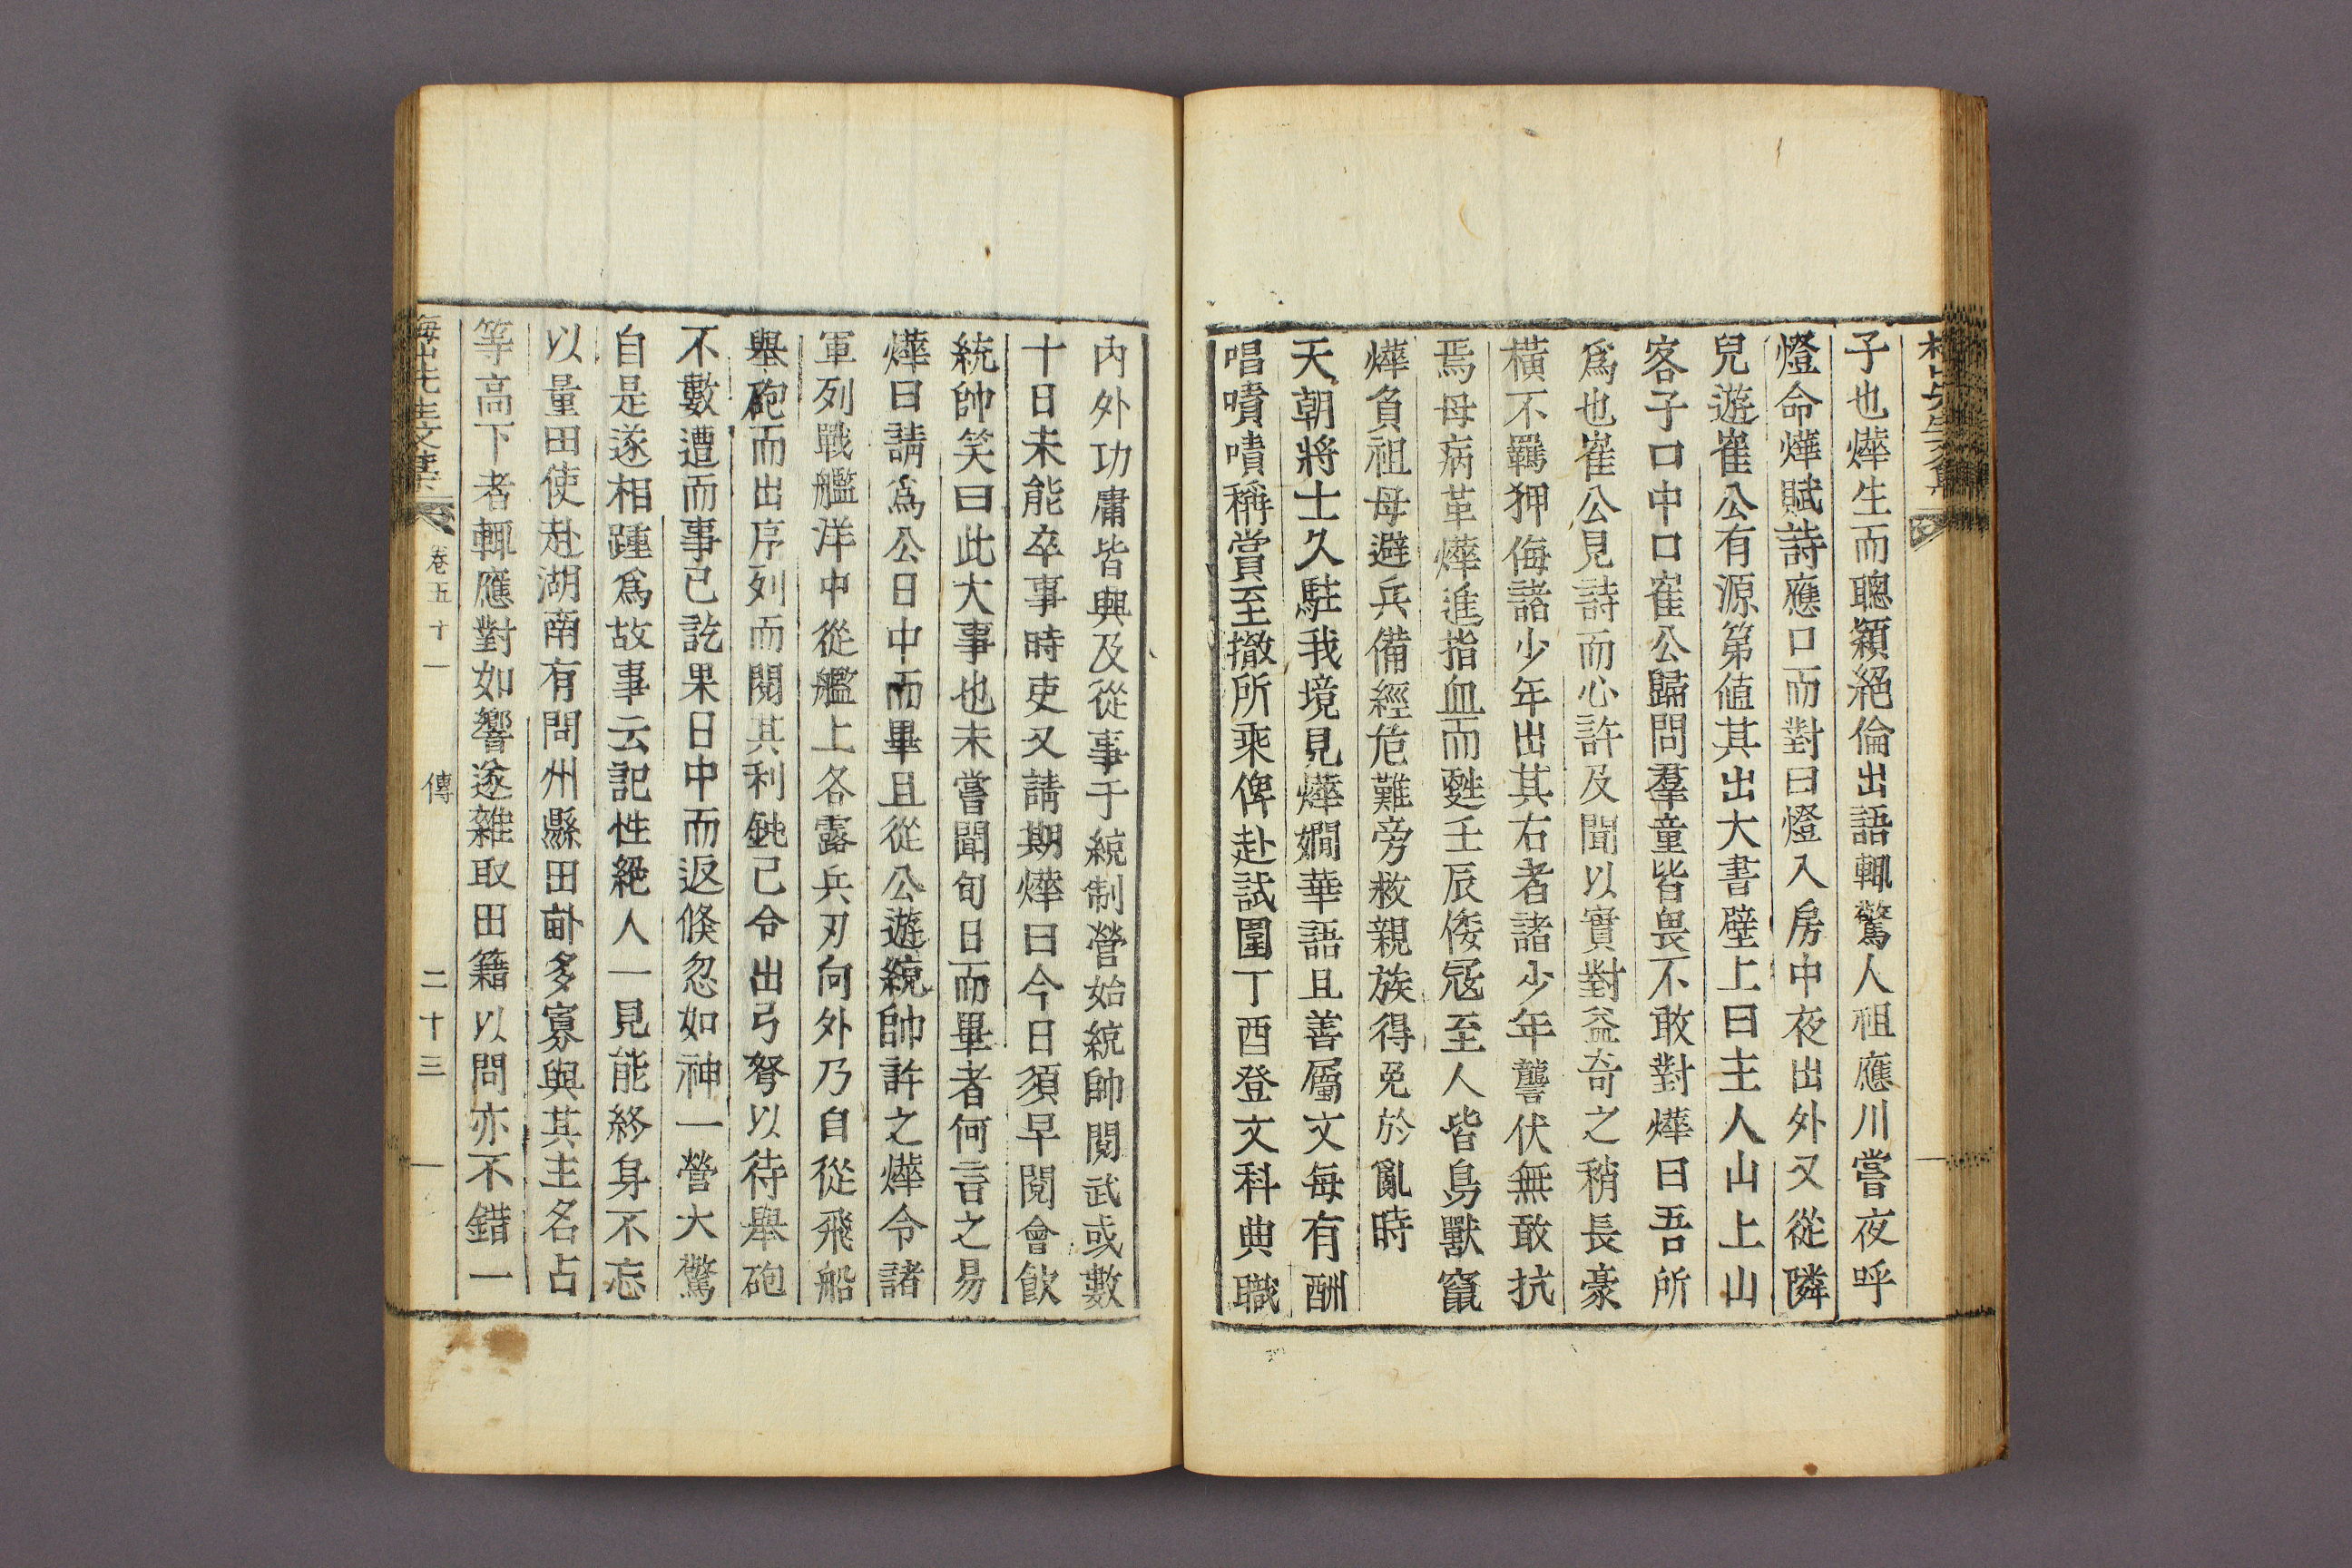 子也燁生而聰穎絕倫出語輒驚人祖應川嘗夜呼
燈命燁賦詩應口而對曰燈入房中夜出外又從隣
兒遊崔公有源第値其出大書壁上曰主人山上山
客子口中口崔公歸問羣童皆畏不敢對燁曰吾所
爲也崔公見詩而心許及聞以實對益奇之稍長豪
橫不羈狎侮諸少年出其右者諸少年讋伏無敢抗
焉母病革燁進指血而甦壬辰倭寇至人皆鳥獸竄
燁負祖母避兵備經危難旁救親族得免於亂時
天朝將士久駐我境見燁嫺華語且善屬文每有酬
唱嘖嘖稱賞至撤所乘俾赴試圍丁酉登文科典職
內外功庸皆興及從事于統制營始統帥閱武或數
十日未能卒事時吏又請期燁曰今日須早閱會飮
統帥笑曰此大事也未嘗聞旬日而畢者何言之易
燁曰請爲公日中而畢且從公遊統帥許之燁令諸
軍列戰艦洋中從艦上各露兵刃向外乃自從飛船
擧砲而出序列而閱其利鈍已令出弓弩以待擧砲
不數遭而事已訖果日中而返倐忽如神一營大驚
自是遂相踵爲故事云記性絕人一見能終身不忘
以量田使赴湖南有問州縣田畝多寡與其主名占
等高下者輒應對如響遂雜取田籍以問亦不錯一
梅山先生文集 卷五十一 傳 二十三